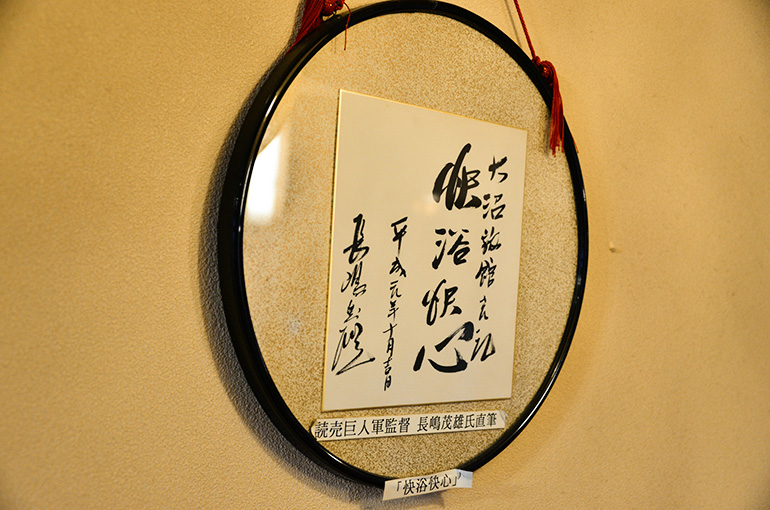 大沼旅館
快浴快心
平成九年十月吉日
長嶋茂雄
読売巨人軍監督 長嶋茂雄氏直筆
「快浴快心」